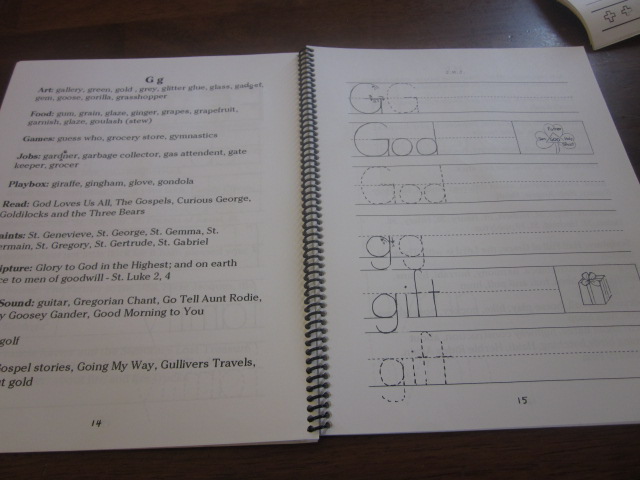 G g
Art: gallery, green, gold , grey, glitter glue, glass, gadget,
gem, goose, gorilla, grasshopper
Food: gum, grain, glaze, ginger, grapes, grapefruit,
garnish, glaze, goulash (stew)
Games: guess who, grocery store, gymnastics
Jobs: gardner, garbage collector, gas attendent, gate
keeper, grocer
Playbox: giraffe, gingham, glove, gondola
Read: God Loves Us All, The Gospels, Curious George,
Goldilocks and the Three Bears
aints: St. Genevieve, St. George, St. Gemma, St.
ermain, St. Gregory, St. Gertrude, St. Gabriel
ipture: Glory to God in the Highest; and on earth
ce to men of goodwill - St. Luke 2, 4
Sound: guitar, Gregorian Chant, Go Tell Aunt Rodie,
y Goosey Gander, Good Morning to You
golf
ospel stories, Going My Way, Gullivers Travels,
t gold
14
G G
God
God
g g
gift
gift
15